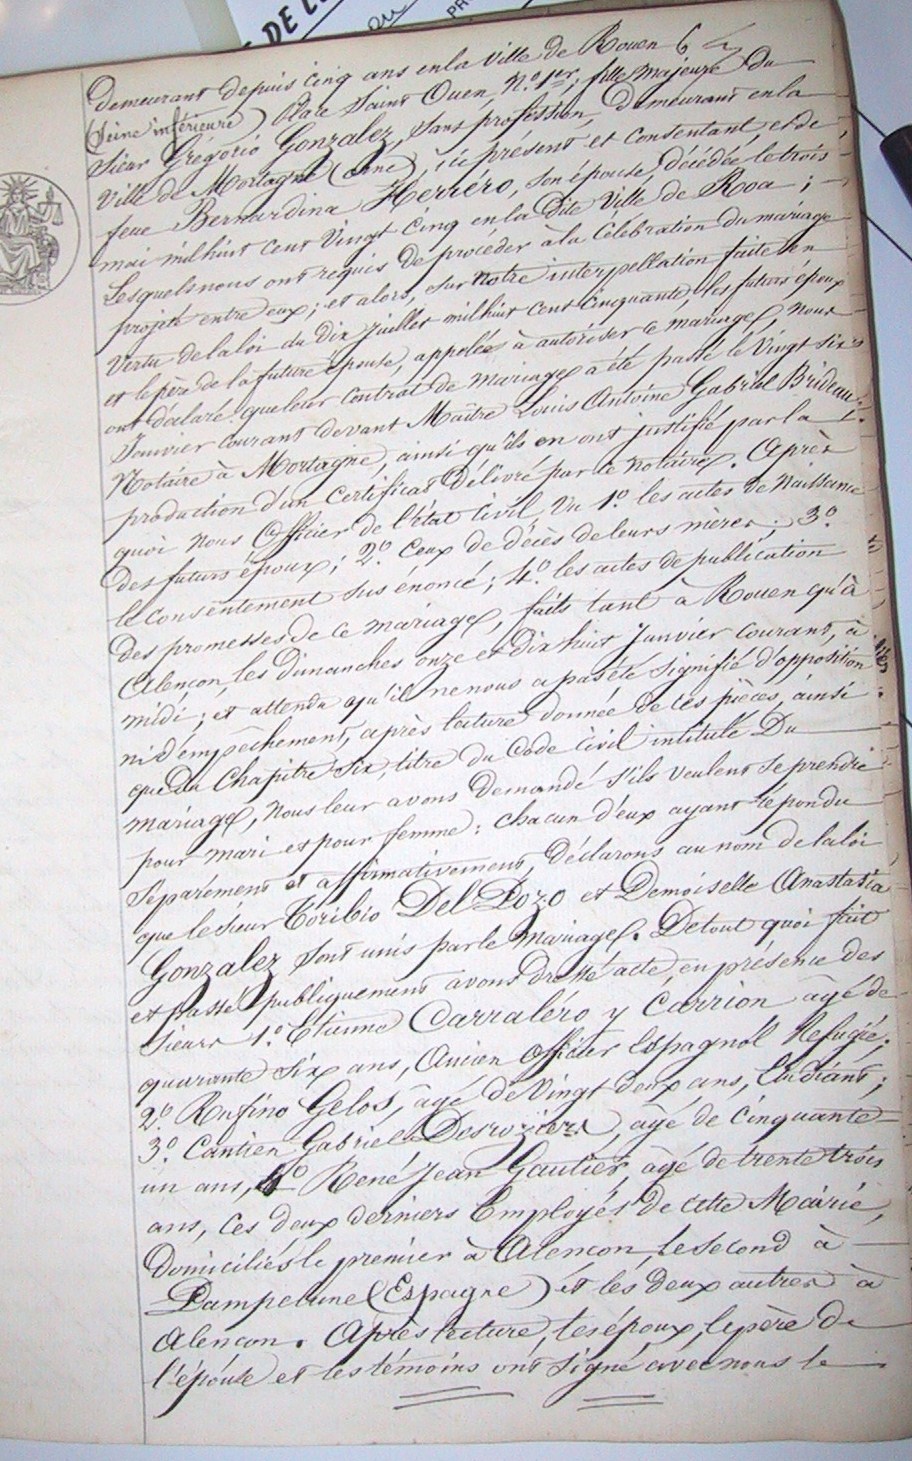 DE L
PR
au
Demeurant depuis cinq ans en la ville de Rouen 6
(Seine inférieure) Place Saint Ouen, N.° 1er, fille majeure du
Sieur Grégorio Gonzalez, sans profession, demeurant en la
ville de Mortagne (Orne), ici présent et consentant, et de
feue Bernardina Herréro, son épouse, décédée le trois
mai mil huit cent vingt cinq en la dite Ville de Roa ;
Lesquels nous ont requis de procéder à la célébration du mariage
projeté entre eux ; et alors, sur notre interpellation faite en
vertu de la loi du dix juillet mil huit cent cinquante, les futurs époux
et le père de la future épouse, appelés à autoriser ce mariage, nous
ont déclaré que leur contrat de mariage a été passé le vingt six
Janvier courant devant Maître Louis Antoine Gabriel Brideau,
Notaire à Mortagne, ainsi qu'ils en ont justifié par la
production d'un certificat délivré par ce notaire. Après
quoi nous Officier de l'état civil vu 1.° les actes de naissance
des futurs époux ; 2.° Ceux de décès de leurs mères ; 3.°
le consentement sus énoncé ; 4.° les actes de publication
des promesses de ce mariage, faits tant à Rouen qu'à
Alençon, les Dimanches onze et dix huit Janvier courant, à
midi ; et attendu qu'il ne nous a pas été signifié d'opposition
ni d'empêchement, après lecture donnée de ces pièces, ainsi
que du chapitre six, titre du Code Civil intitulé Du
mariage, nous leur avons demandé s'ils veulent se prendre
pour mari et pour femme : chacun d'eux ayant répondu
séparément et affirmativement, Déclarons au nom de la loi
que le sieur Toribio Del Pozo et Demoiselle Anastasia
Gonzalez sont unis par le mariage. De tout quoi fait
et passé publiquement avons dressé acte, en présence des
Sieurs 1.° Etienne Carraléro y Carrion âgé de
quarante six ans, Ancien officier Espagnol Réfugié ;
2.° Rufino Gelos, âgé de vingt deux ans, Etudiant ;
3.° Cantien Gabriel Desroziers, âgé de cinquante
un ans, 4° René Jean Gautier, âgé de trente trois
ans, ces deux derniers Employés de cette Mairie,
Domiciliés le premier à Alençon, le second à
Pampelune (Espagne) et les deux autres à
Alençon. Après lecture, les époux, le père de
l'épouse et les témoins ont signé avec nous le